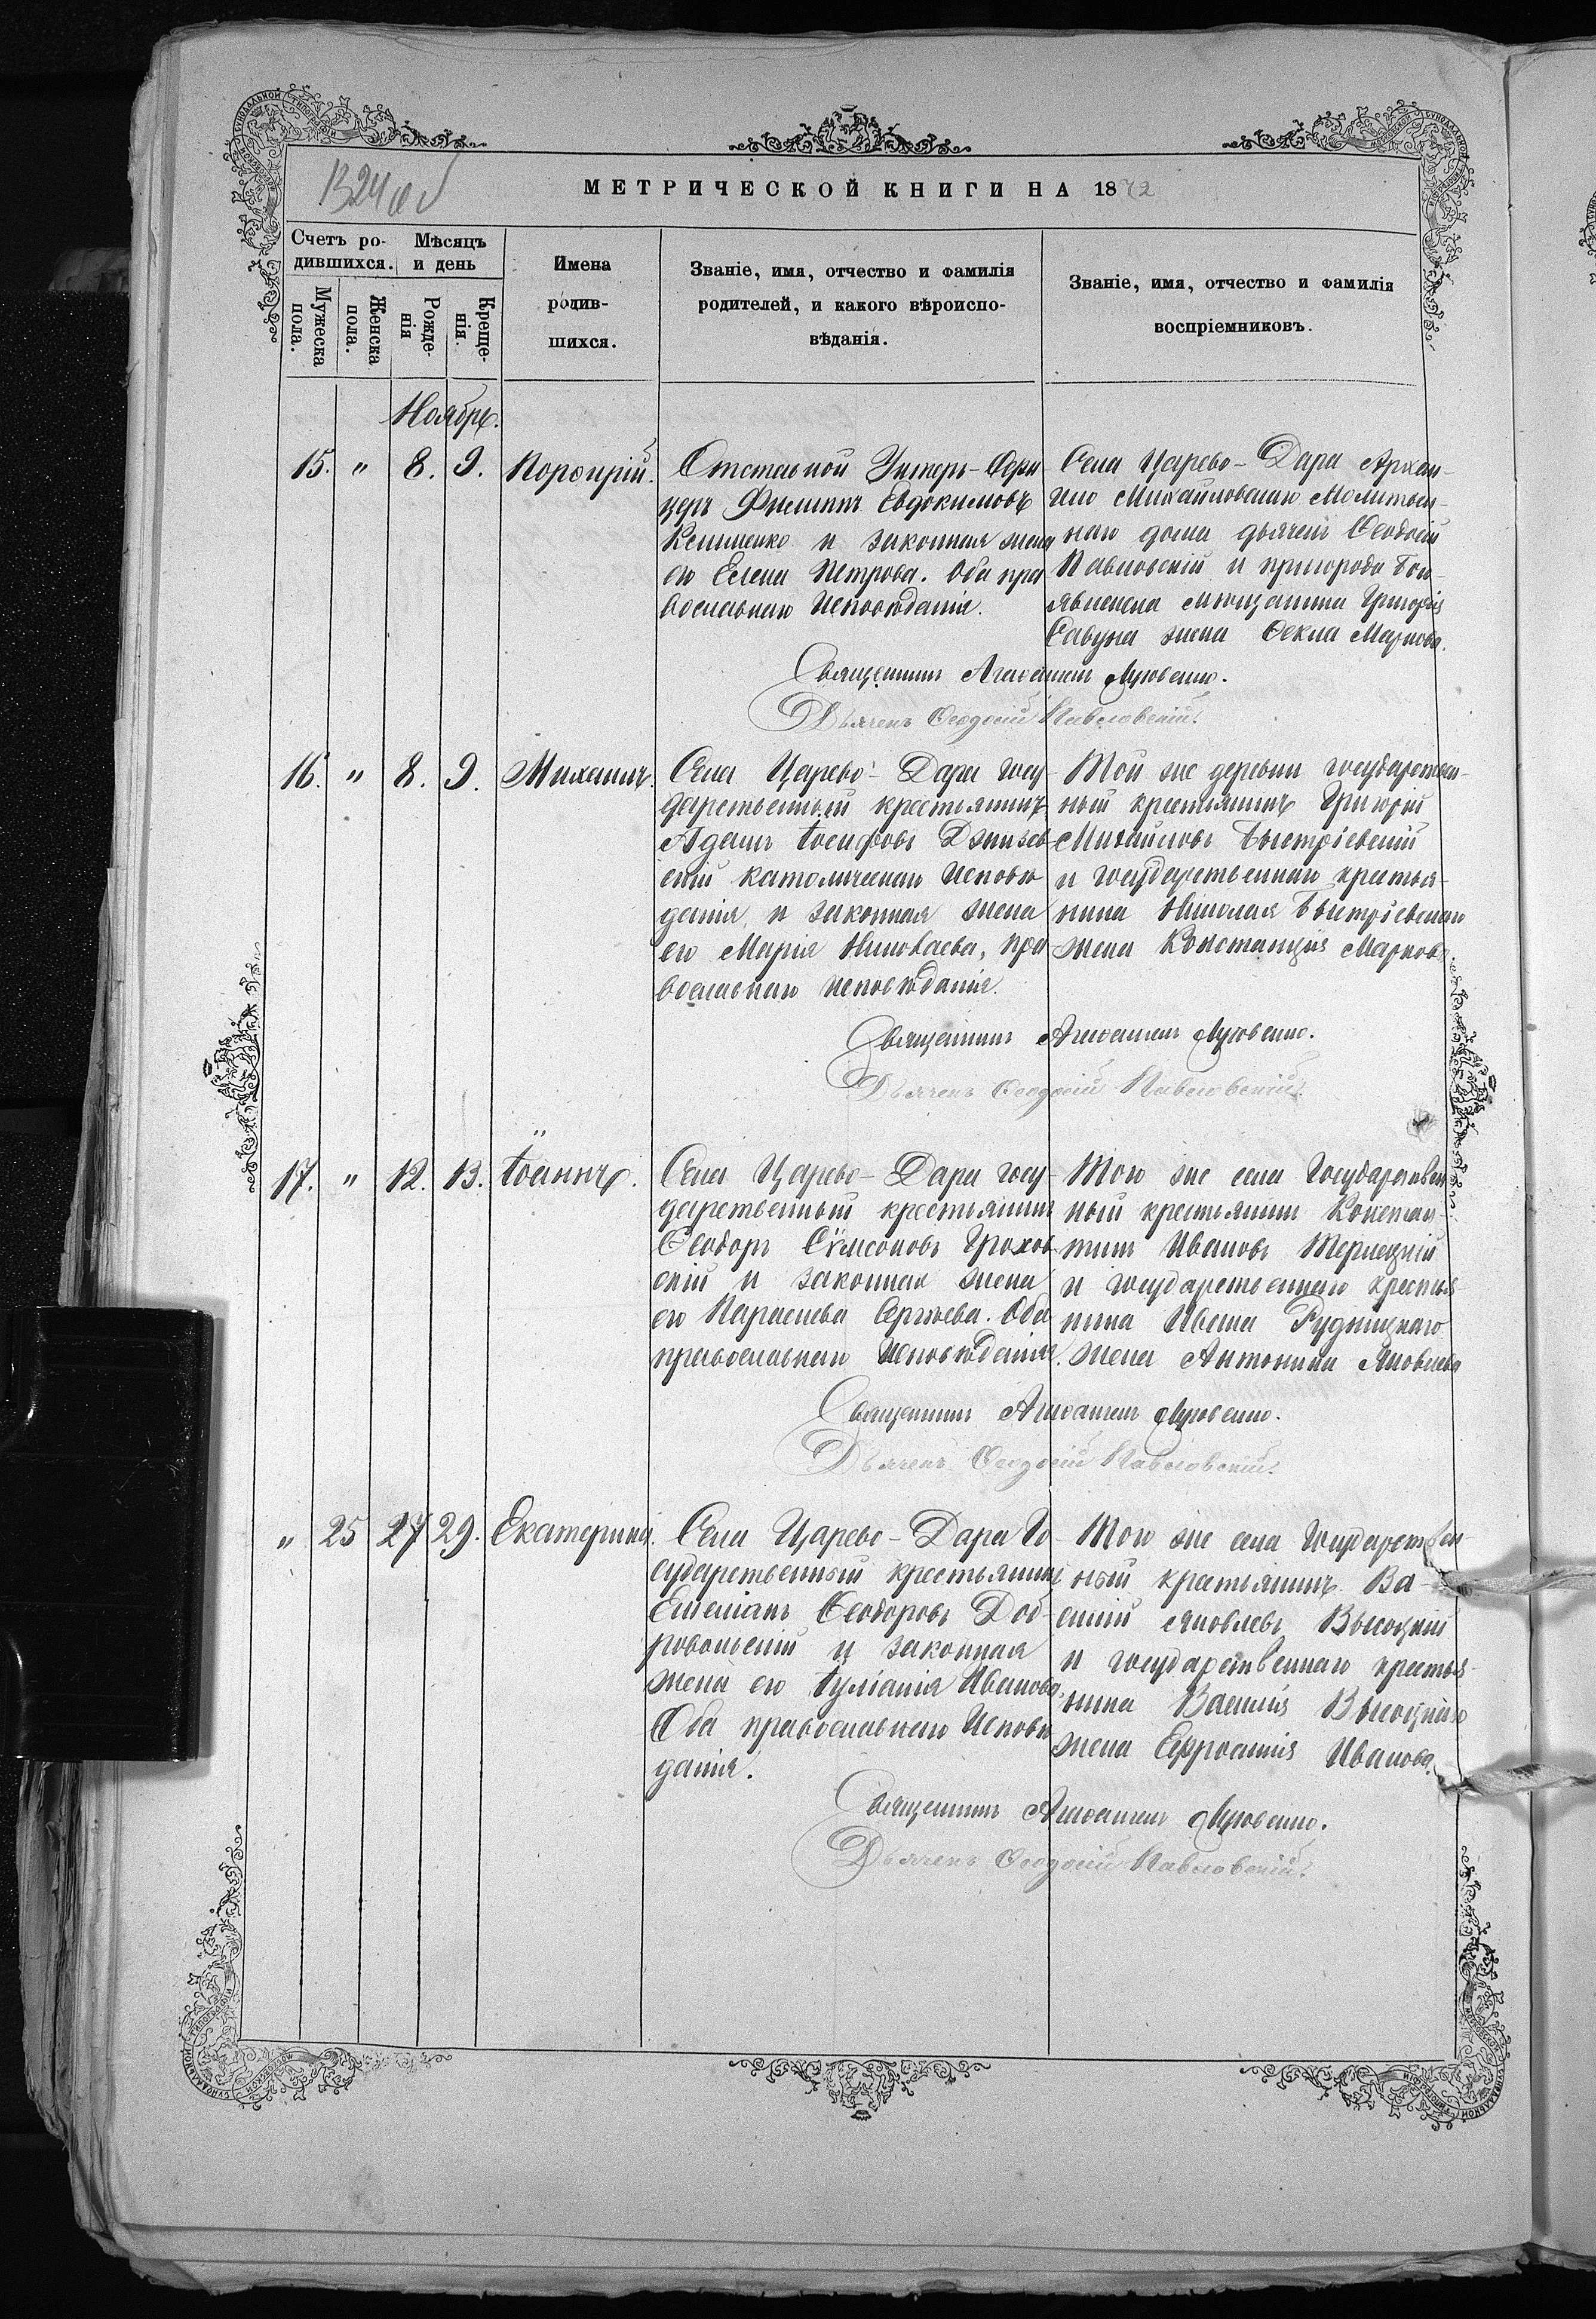 1324 об
МЕТРИЧЕСКОЙ КНИГИ НА 1872
Счетъ ро-
дившихся.
Мѣсяцъ
и день
Имена
родив-
шихся.
Званіе, имя, отчество и фамилія
родителей, и какого вѣроиспо-
вѣданія.
Званіе, имя, отчество и фамилія
воспріемниковъ.
Мужеска
пола.
Женска
пола.
Рожде-
нія
Креще-
нія.
Ноябрь.
15. " 8. 9. Порфирій.
Отставной Унтеръ-Офи
церъ Филиппъ Евдокимовъ
и законная жена
его Елена Петрова. Оба пра
вославнаго Исповѣданія.
Села Царево-Дара Архан-
гело Михайловскаго Молитвен-
наго дома дьячекъ Ѳеодосій
Павловскій и пригорода Бог-
явленска мѣщанина Григорія
Савуна жена Ѳекла Маркова.
Священникъ Агаѳангелъ
Дьячекъ Ѳеодосій Павловскій.
16. " 8. 9. Михаилъ.
Села Царево-Дара госу-
дарственный крестьянинъ
Адамъ Іосифовъ
скій католическаго Исповѣ
данія и законная жена
его Марія Николаева, пра
вославнаго исповѣданія.
Той же деревни государствен-
ный крестьянинъ Григорій
Михайловъ Быстріевскій
и государственнаго крестья-
нина Николая Быстріевскаго
жена Констанція Маркова.
Священникъ Агаѳангелъ
Дьячекъ Ѳеодосій Павловскій.
17. " 12. 13. Іоаннъ.
Села Царево-Дара госу-
дарственный крестьянинъ
Ѳеодоръ Сѵмеоновъ Грохов
скій и законная жена
его Параскева Сергѣева. Оба
православнаго Исповѣданія.
Того же села Государствен
ный крестьянинъ Констан-
тинъ Ивановъ Терлецкій
и государственнаго крестья
нина Ивана Рудницкаго
жена Антонина Яковлева
Священникъ Агаѳангелъ
Дьячекъ Ѳеодосій Павловскій.
" 25 27 29. Екатерина.
Села Царево-Дара Го-
сударственный крестьянинъ
Емеліанъ Ѳеодоровъ Доб-
ровольскій и законная
жена его Іуліанія Иванова
Оба православнаго Исповѣ
данія.
Того же села Государствен-
ный крестьянинъ Ва-
силій Яковлевъ Высоцкій
и государственнаго крестья-
нина Василія Высоцкаго
жена Евфросинія Иванова.
Священникъ Агаѳангелъ
Дьячекъ Ѳеодосій Павловскій.